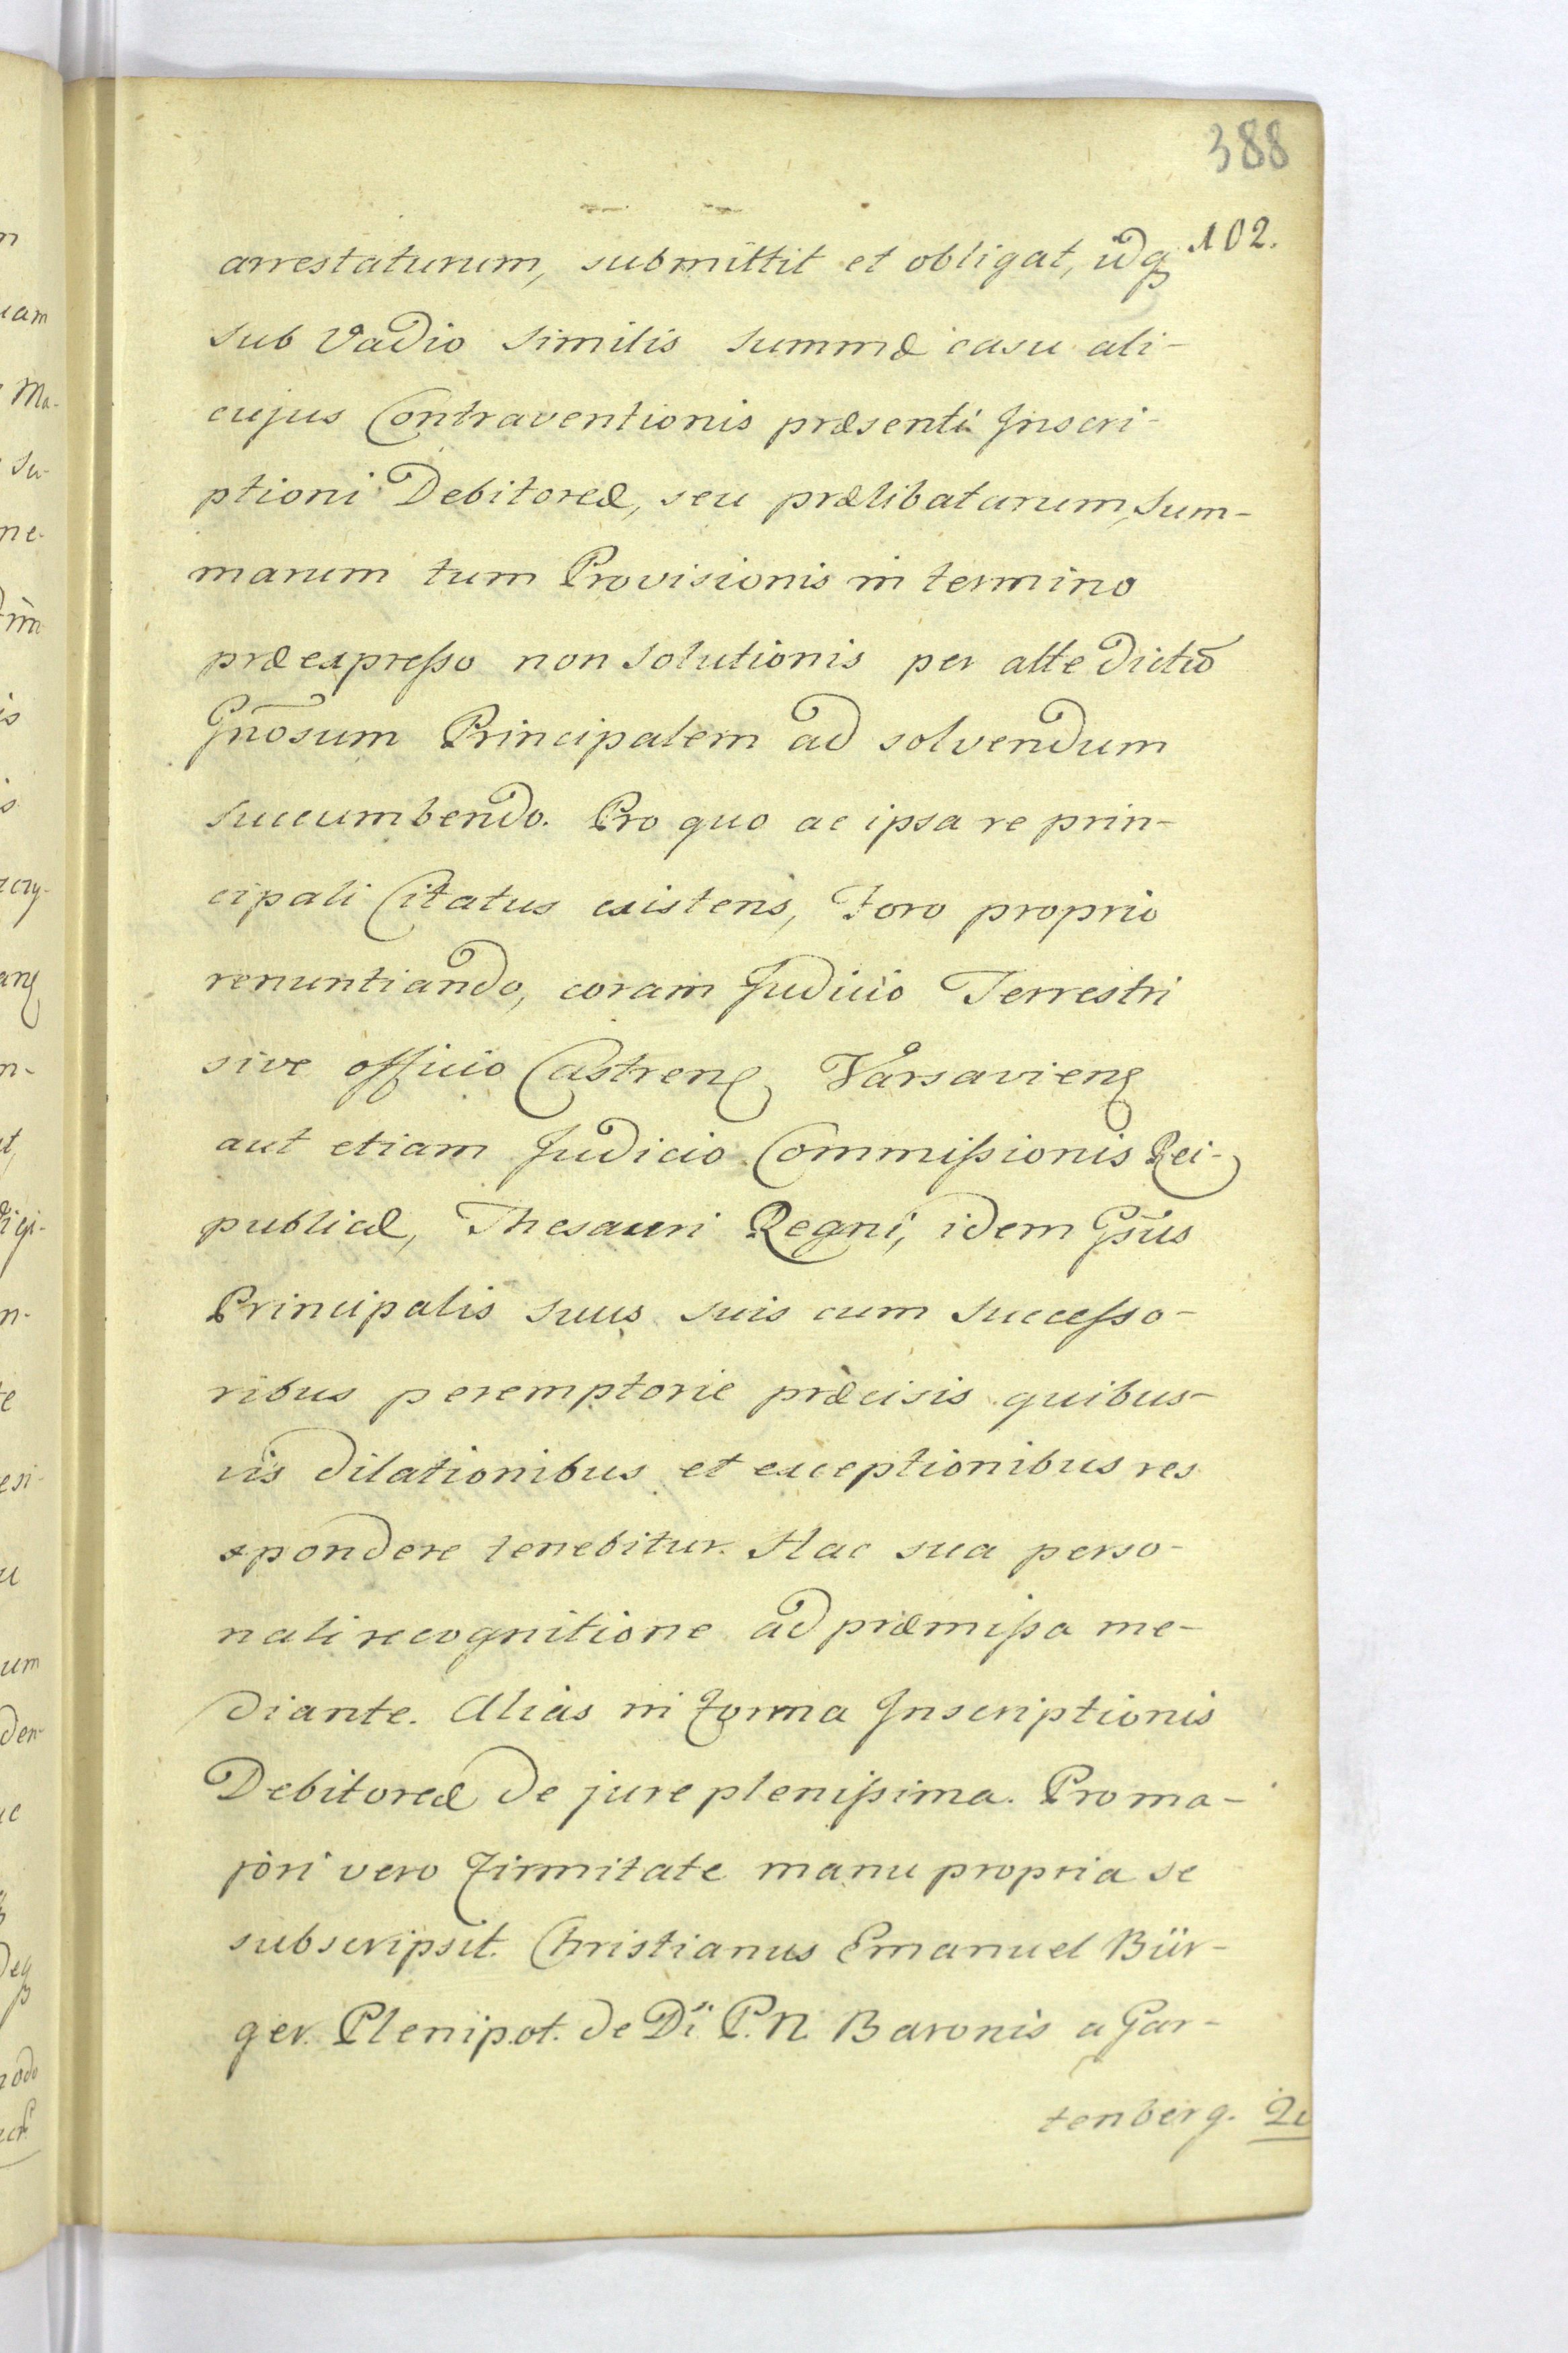 388
102.
arrestaturum, submittit et obligat, idq́
sub Vadio similis summæ casu ali-
cujus Contraventionis præsenti Inscri-
ptioni Debitoreæ, seu prælibatarum, Sum-
marum tum Provisionis in termino
præexpresso non solutionis per alte dictū
Gnōsum Principalem ad solvendum
succumbendo. Pro quo ac ipsa re prin-
cipali Citatus existens, Foro proprio
renuntiando, coram Judicio Terrestri
sive officio Castren Varsavien
aut etiam Judicio Commissionis Rei-
publicæ, Thesauri Regni, idem Gs̄us
Principalis suus suis cum successo-
ribus peremptorie præcisis quibus-
vis dilationibus et exceptionibus res
spondere tenebitur. Hac sua perso-
nali recognitione ad præmissa me-
diante. Alias in forma Inscriptionis
Debitoreæ de jure plenissima. Pro ma-
jori vero firmitate manu propria se
subscripsit. Christianus Emanuel Bür-
ger. Plenipot. de Di P. N. Baronis a Gar-
tenberg.